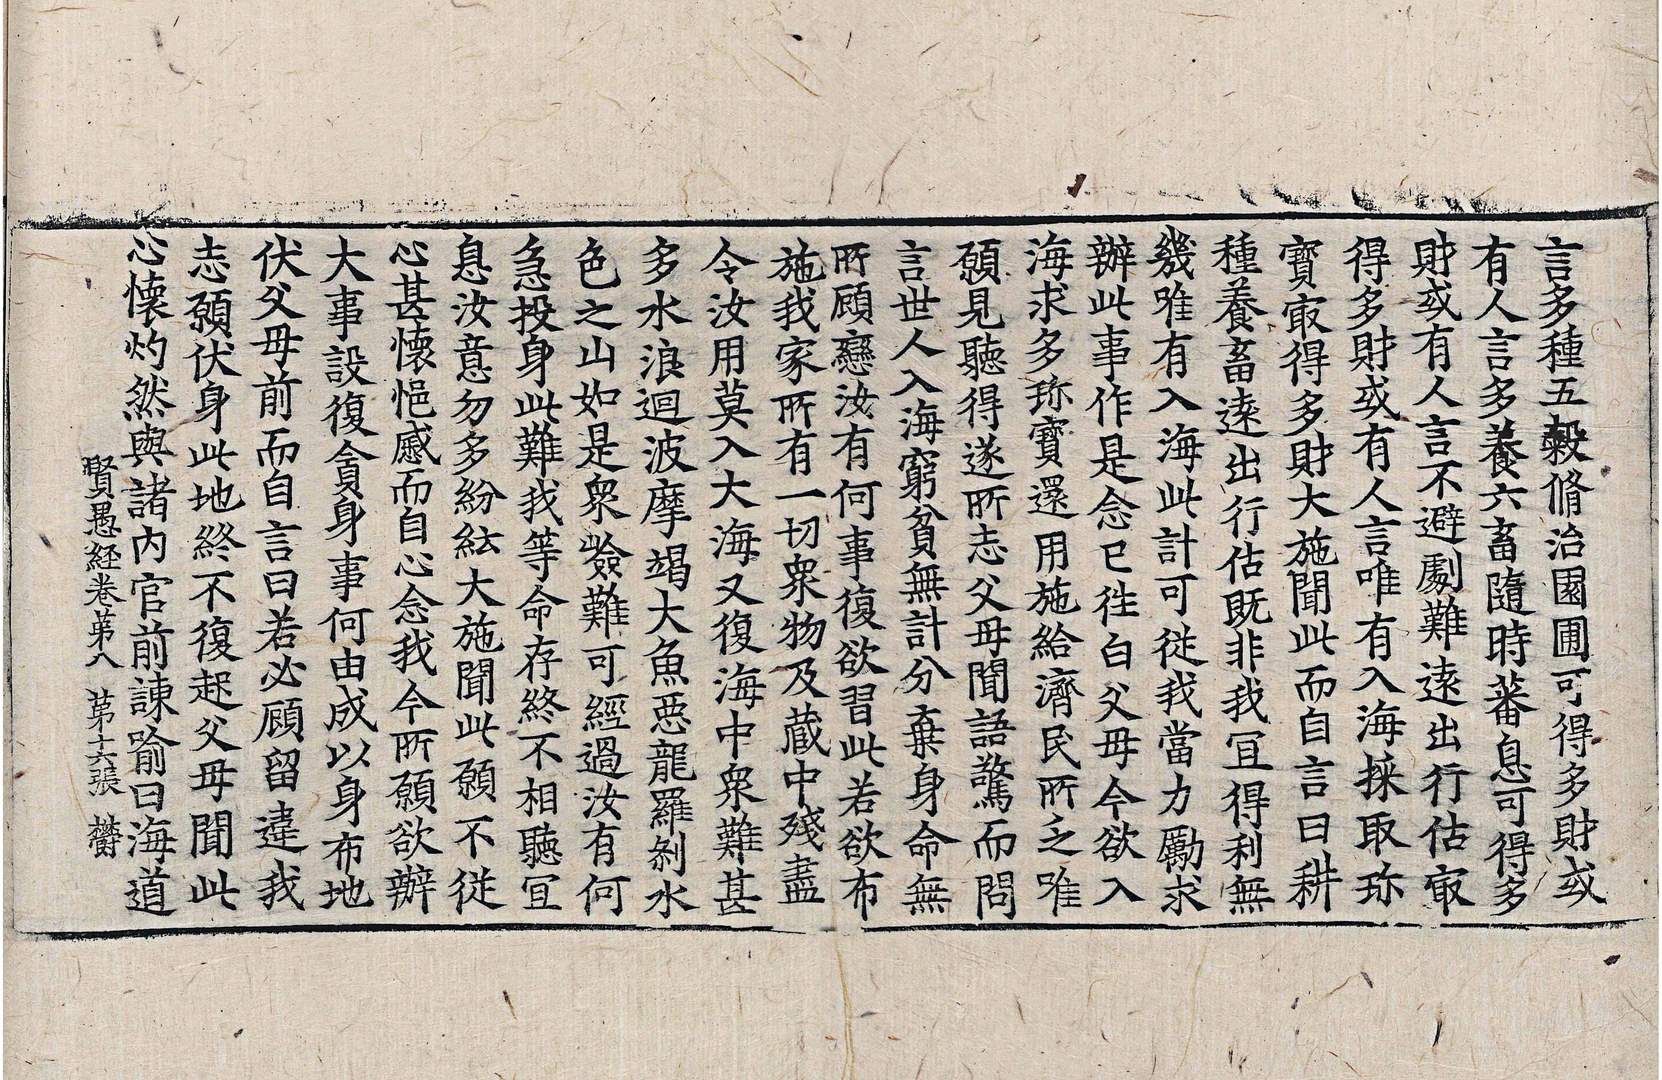 言多種五穀脩治園圃可得多財或
有人言多養六畜隨時蕃息可得多
財或有人言不避劇難遠出行估㝡
得多財或有人言唯有入海採取珎
寶㝡得多財大施聞此而自言曰耕
種養畜遠出行估旣非我冝得利無
幾唯有入海此計可從我當力勵求
辦此事作是念已往白父母今欲入
海求多珎寶還用施給濟民所乏唯
願見聽得遂所志父母聞語驚而問
言世人入海窮貧無計分棄身命無
所顧戀汝有何事復欲習此若欲布
施我家所有一切衆物及藏中殘盡
令汝用莫入大海又復海中衆難甚
多水浪迴波摩竭大魚惡龍羅剎水
色之山如是衆嶮難可經過汝有何
急投身此難我等命存終不相聽冝
息汝意勿多紛紜大施聞此願不從
心甚懷悒慼而自心念我今所願欲辦
大事設復貪身事何由成以身布地
伏父母前而自言曰若必顧留違我
志願伏身此地終不復起父母聞此
心懷灼然與諸內官前諫喻曰海道
賢愚經卷第八 第十六張 欝